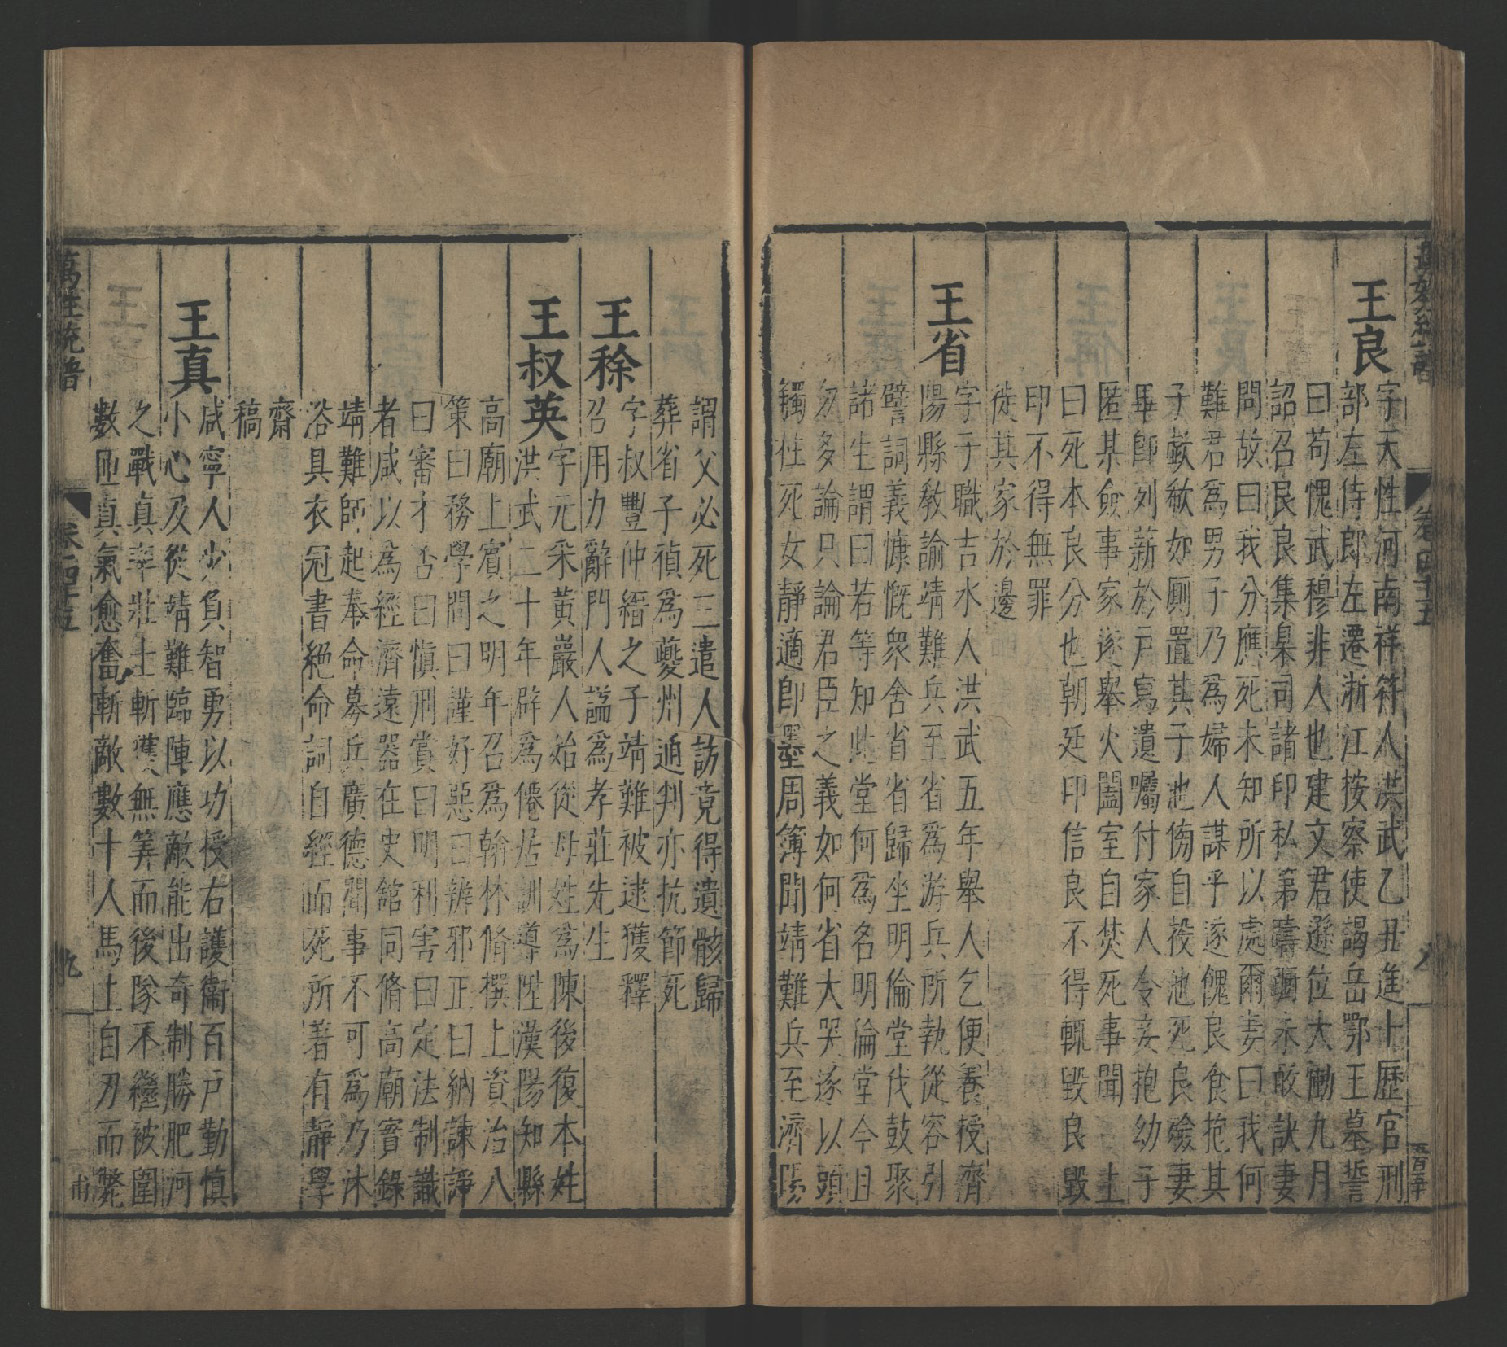 王良
字天性河南祥符人洪武乙丑進士歷官刑
部左侍郎左遷浙江按察使謁岳鄂王墓誓
曰苟愧武穆非人也建文君遜位大慟九月
詔召良良集臬司諸印私第躊躇未敢訣妻
問故曰我分應死未知所以處爾妻曰我何
難君為男子乃為婦人謀乎遂餽良食抱其
子欷歔如廁置其子池傍自投池死良殮妻
畢即列薪於戶寫遺囑付家人令妾抱幼子
匿某僉事家遂舉火闔室自焚死事聞 上
曰死本良分也朝廷印信良不得輒毀良毀
印不得無罪
徙其家於邊
王省
字子職吉水人洪武五年舉人乞便養授濟
陽縣教諭靖難兵至省為游兵所執從容引
譬詞義慷慨衆舍省省歸坐明倫堂伐鼓聚
諸生謂曰若等知此堂何為名明倫堂今且
勿多論只論君臣之義如何省大哭遂以頭
觸柱死女靜適即墨周簿聞靖難兵至濟陽
謂父必死三遣人訪竟得遺骸歸
葬省子禎為夔州通判亦抗節死
王稌
字叔豐仲縉之子靖難被逮獲釋
召用力辭門人謚為孝莊先生
王叔英
字元采黃巖人始從母姓為陳後復本姓
洪武二十年辟為僊居訓導陞漢陽知縣
高廟上賓之明年召為翰林脩撰上資治八
策曰務學問曰謹好惡曰辨邪正曰納諫諍
曰審才否曰慎刑賞曰明利害曰定法制識
者咸以為經濟遠器在史館同脩高廟實錄
靖難師起奉命募兵廣德聞事不可為乃沐
浴具衣冠書絕命詞自經而死所著有靜學
齋
稿
王真
咸寧人少負智勇以功授右護衛百戶勤慎
小心及從靖難臨陣應敵能出奇制勝肥河
之戰真率壯士斬獲無筭而後隊不繼被圍
數匝真氣愈奮斬敵數十人馬上自刃而斃
萬姓統譜
卷四十五
九